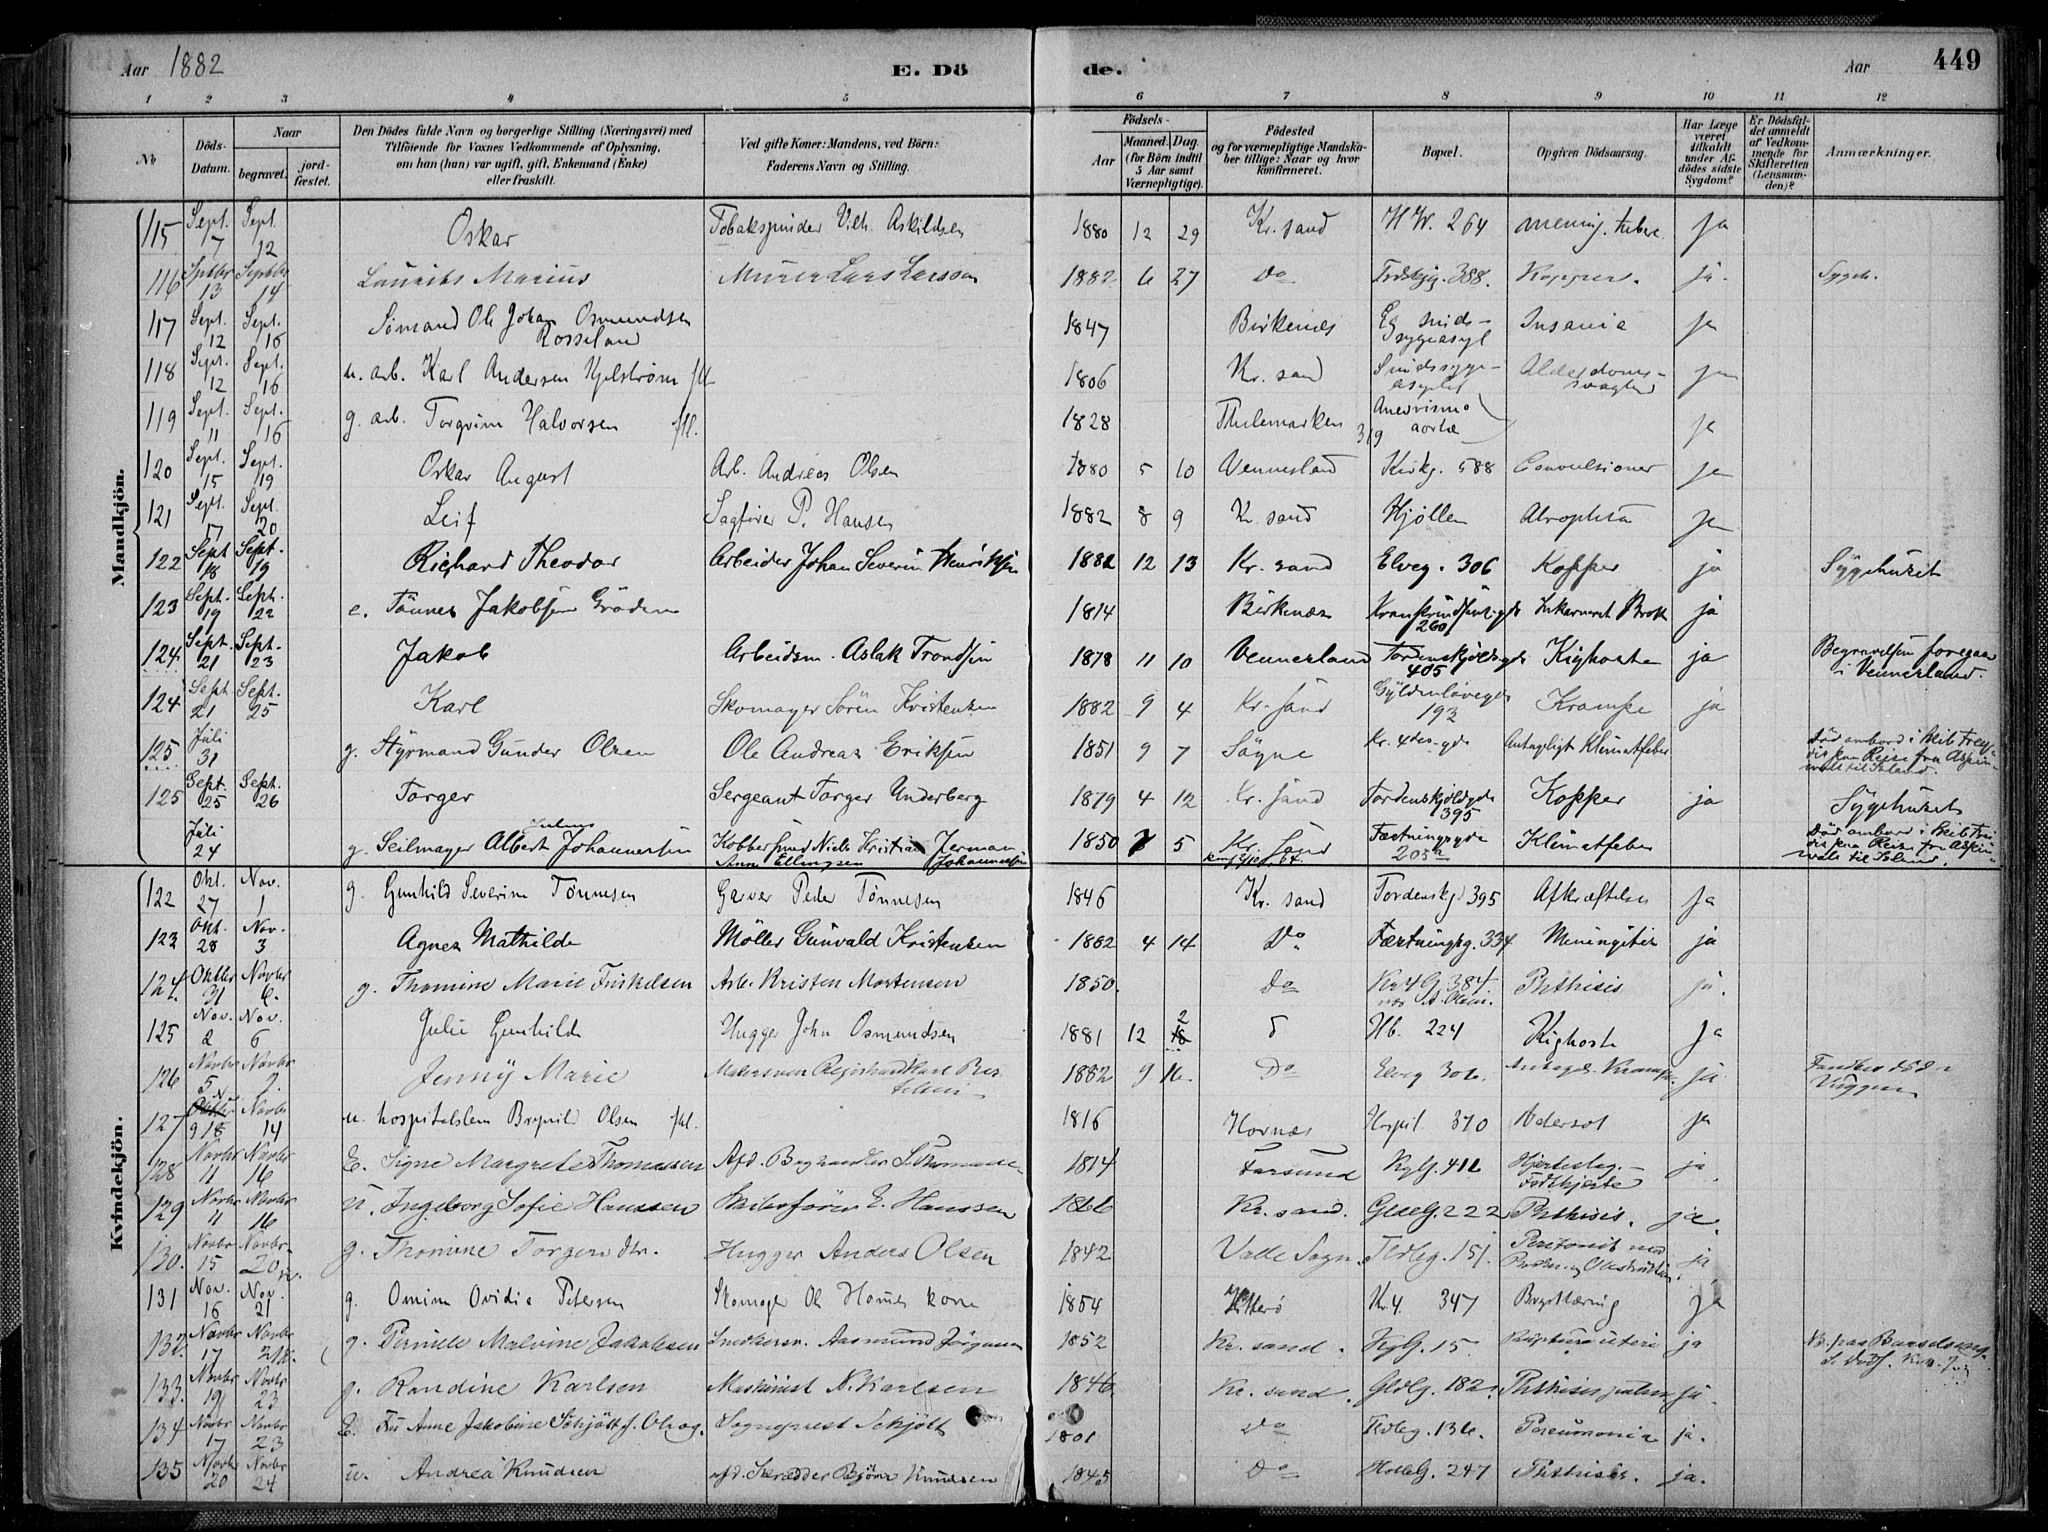 Aar 1882 E. Dö de. Aar 449
1 2 3 4 5 6 7 8 9 10 11 12
No
Döds-Datum.
Naar
begravet.
jord-fæstet.
Den Dödes fulde Navn og borgerlige Stilling (Næringsvei) med
Tilföiende for Voxnes Vedkommende af Oplysning,
om han (hun) var ugift, gift, Enkemand (Enke)
eller fraskilt.
Ved gifte Koner: Mandens, ved Börn:
Faderens Navn og Stilling.
Födsels-
Aar
Maaned. Dag.
(for Börn indtil
5 Aar samt
Værnepligtige).
Födested
og for værnepligtige Mandska-
ber tillige: Naar og hvor
konfirmeret.
Bopæl.
Opgiven Dödsaarsag.
Har Læge
været
tilkaldt
under Af-
dödes sidste
Sygdom?
Er Dödsfal-
det anmeldt
af Vedkom-
mende for
Skifteretten
(Lensman-
den)?
Anmærkninger.
Mandkjön.
115 Sept. 7 Sept. 12 Oskar Tobakspinder Vilh. Askildsen 1880 12 29 Kr. sand H W. 264 mening. tuberc. ja
116 Septbr 13 Septbr 14 Laurits Marius Murer Lars Larsson 1882 6 27 Do 388. Kopper. ja. Sygeh.
117 Sept. 12 Sept. 16 Sömand Ole Johan Osmundsen Rosseland 1847 Birkenes Eg sinds-sygeasyl Insania ja
118 Sept. 12 Sept. 16 u. arb. Karl Andersen Hjelström fll 1806 Kr. sand Sindssyge-asylet Alderdoms-svaghed ja
119 Sept. 11 Sept. 16 g. arb. Torgrim Halvorsen fll. 1828 Thelemarken 319 Anevrisma aortæ ja
120 Sept. 15 Sept. 19 Oskar August Arb. Andreas Olsen 1880 5 10 Vennesland Kirkg. 588 Convulsioner ja
121 Sept. 17 Sept. 20 Leif Sagförer P. Hansen 1882 8 9 Kr. sand Kjöllen Atrophia ja
122 Sept 18 Sept. 19 Richard Theodor Arbeider Johan Severin Henriksen 1882 12 13 Kr. sand Elveg. 306 Kopper ja Sygehuset
123 Sept. 19 Sept. 22 e. Tönnes Jakobsen Gröden 1814 Birkenæs 260 Inkarneret Brok ja
124 Sept. 21 Sept. 23 Jakob Arbeidsm. Aslak Trondsen 1878 11 10 Vennesland Tordenskjoldsgde 405 Kighoste ja Begravelsen foregaar i Vennesland.
124 Sept 21 Sept. 25 Karl Skomager Sören Kristensen 1882 9 4 Kr. sand Gyldenlövegde 192 Krampe ja
125 Juli 31 g. Styrmand Gunder Olsen Ole Andreas Eriksen 1851 9 7 Sögne Kr. 4des gde Antageligt Klimatfeber Död ombord i Skib paa Reise fra til Island.
125 Sept. 25 Sept. 26 Torger Sergeant Torger Underberg 1879 4 12 Kr. sand Tordenskjoldsgde 395 Kopper ja Sygehuset
Juli 24 g. Seilmager Albert Julius Johannesen Kobbersmed Niels Kristian Herman Johannesen Anne Ellingsen 1850 7 5 Kr. sand Fæstningsgde 205a Klimatfeber Död ombord i Skib paa Reise fra til Island.
Kvindekjön.
122 Okt. 27 Nov. 1 g. Gunhild Severine Tönnesen Garver Peder Tönnesen 1846 Kr. sand Tordenskj 395 Afkræftelse ja
123 Okt. 28 Nov. 3 Agnes Mathilde Möller Gunvald Kristensen 1882 4 14 Do Fæstningsg. 334 Meningitis ja
124. Oktbr 31 Novbr 6. g. Thomine Marie Terkelsen Arb. Kristen Mortensen 1850. Do Kr 4 G 384. Phthisis ja.
125 Nov. 2 Nov. 6 Julie Gunhilde Hugger John Osmundsen 1881 12 2 18 Hb. 224 Kighoste ja
126 Novbr 5 Novbr 9. Jenny Marie 1882 9 16. Do Elveg 306. Krampe ja.
127 Oktbr 9 18 Novbr 14 u. hospitalslem Bergild Olsen fll. 1816 Hornæs Hospit. 370 Vatersot ja
128 Novbr 11 Novbr 16 E. Signe Margrete Thomassen Afd. S. Thomassen 1814 Farsund KglG. 412 Hjerteslag. - Fedthjerte ja.
129 Novbr 11 Novbr 16 u. Ingeborg Sofie Hanssen Skibsförer E. Hanssen 1866 Kr. sand. GldlG. 222 Phthisis. ja.
130. Novbr 15 Novbr 20 g. Thomine Torgersdtr. Hugger Anders Olsen 1842 Valle Sogn. 151. Peritonit ja.
131 Nov. 16 Nov. 21 g. Omine Ovidia Petersen Skomager Ole kone 1854 Hitterö Kr. 4. 347 Brystlæring ja
132. Novbr 17 Novbr 21 g. Pernille Malvine Jakobsen Snedkersv. Aasmund Jörgensen 1852 Kr. sand. KglG. 15. Ruptura uteri ja
133. Novbr 19 Novbr 23 g. Randine Karlsen Maskinist N. Karlsen 1846 Kr. sand. GldlG. 182. Phthisis pulm. ja
134 Novbr 17 Novbr 23 E. Fru Anne Jakobine Schjött f. Sogneprest Schjött 1801 Do 136. Pneumonia ja.
135 Novbr 20 Novbr 24 u. Andrea Knudsen afd. Skrædder Björn Knudsen 1845 Do HolbG. 247 Phthisis. ja.